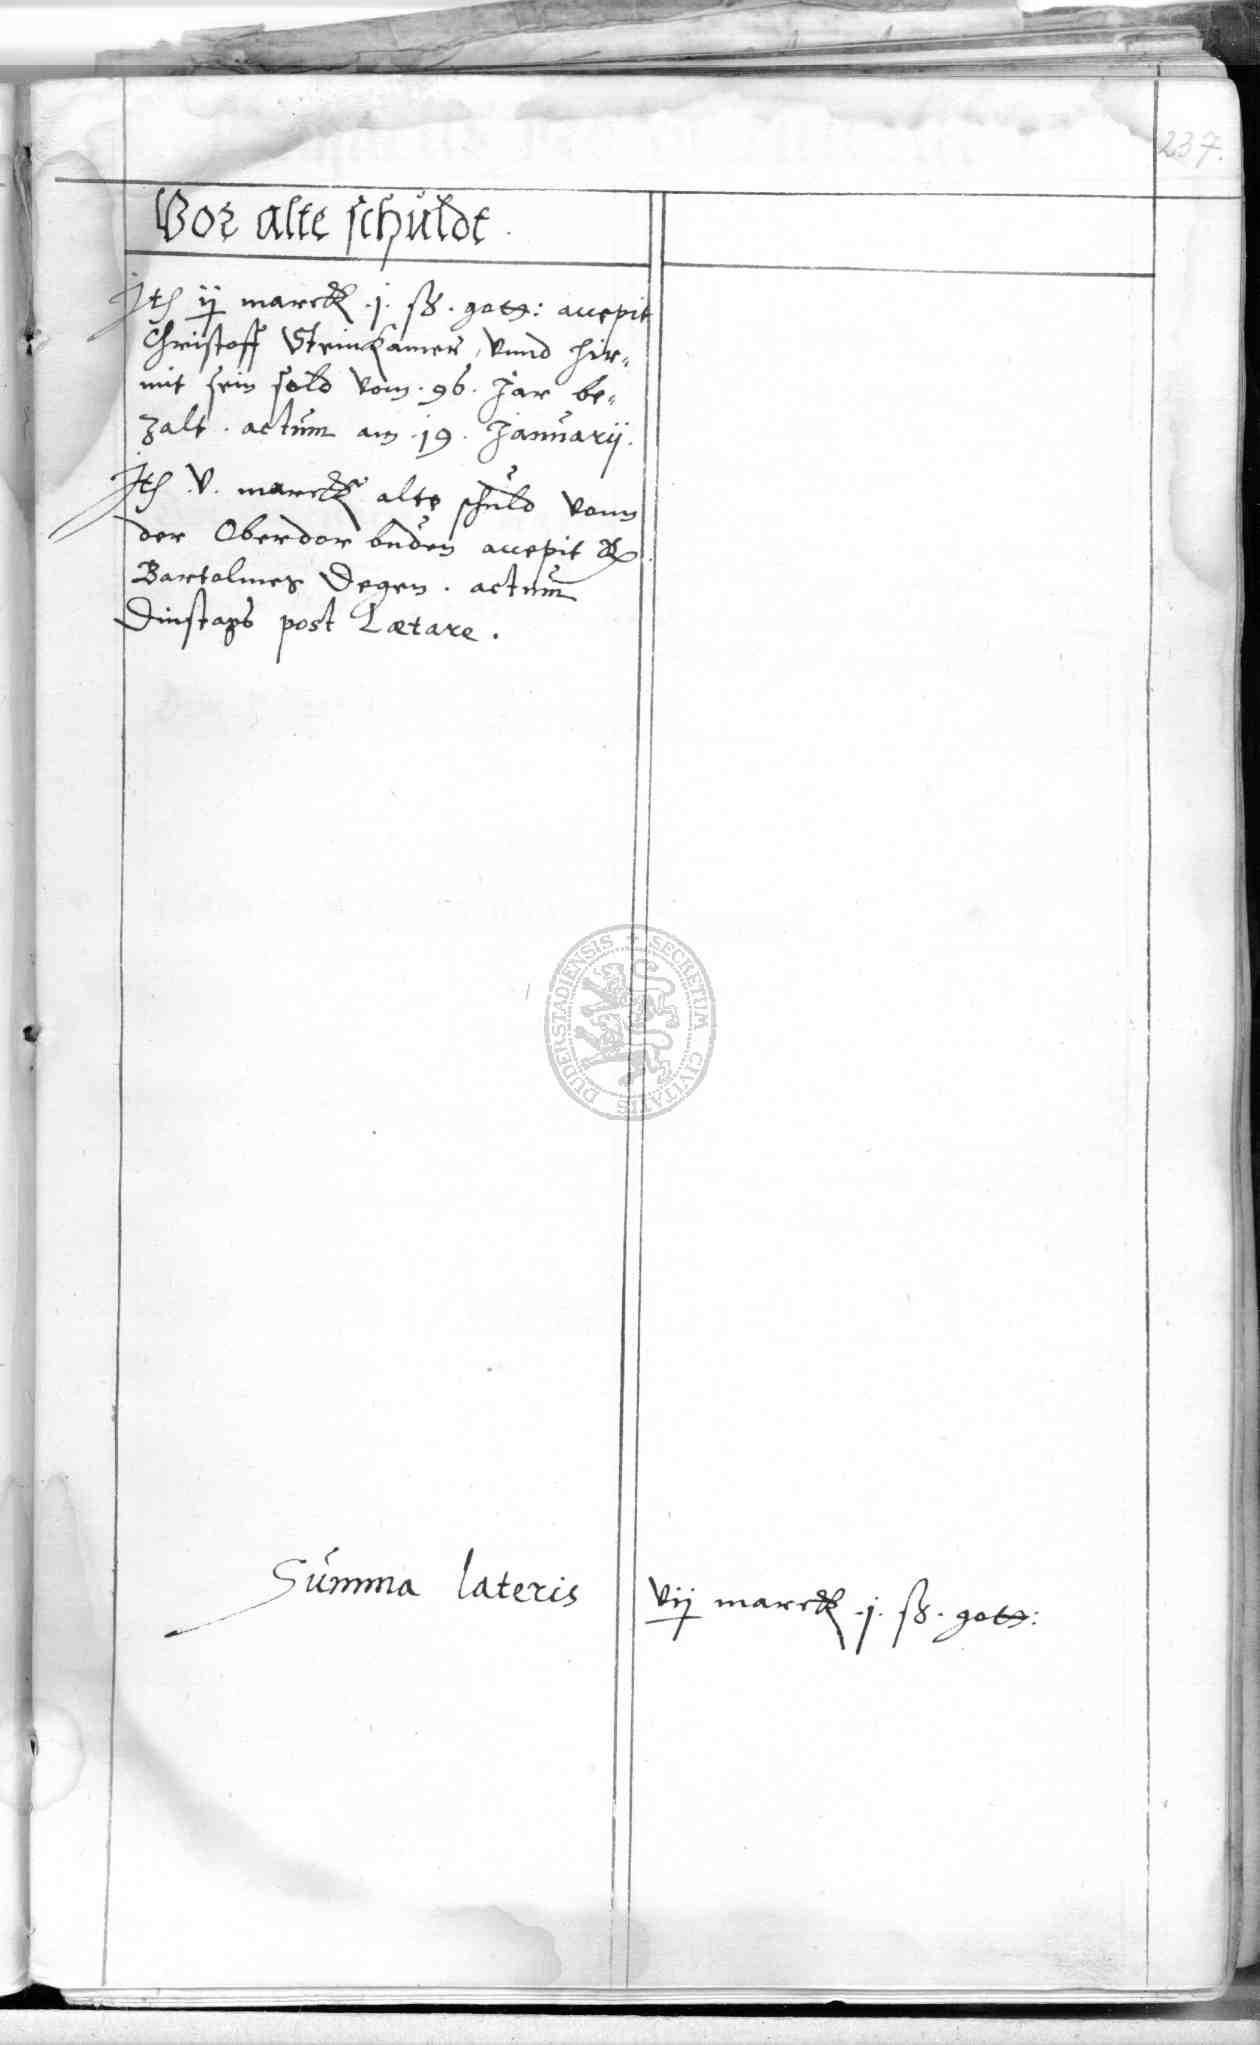 237.
Vor alte schuldt.
Jt ij marck .j. ß. gott: accepit
Christoff Steinkamer, vnnd hir=
mit sein sold vom .96. Jar be=
zalt. actum am .19. Januarij.
Jt .v. marck alte schuld vonn
der Oberdor buden accepit
Bartolmes Degen. actum
Dinstags post Lætare.
SECRETUM CIVITATIS DUDERSTADIENSIS
Summa lateris vij marck .j. ß. gott: